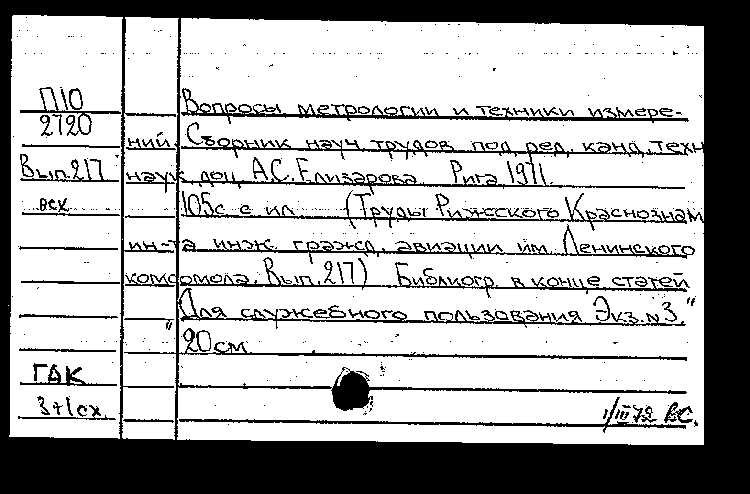 П10
2720
Вып.217
всх
ГАК
3+1сх.
Вопросы метрологии и техники измере-
ний. Сборник науч трудов под ред. канд. техн
наук доц А.С. Елизарова Рига, 1971.
105с с ил (Труды Рижсского Краснознам
ин-та инж гражд. авиации им Ленинского
комсомола. Вып. 217) Библиогр. в конце статей
"Для служебного пользования Экз. №3."
20см
1/III 72 ВС.